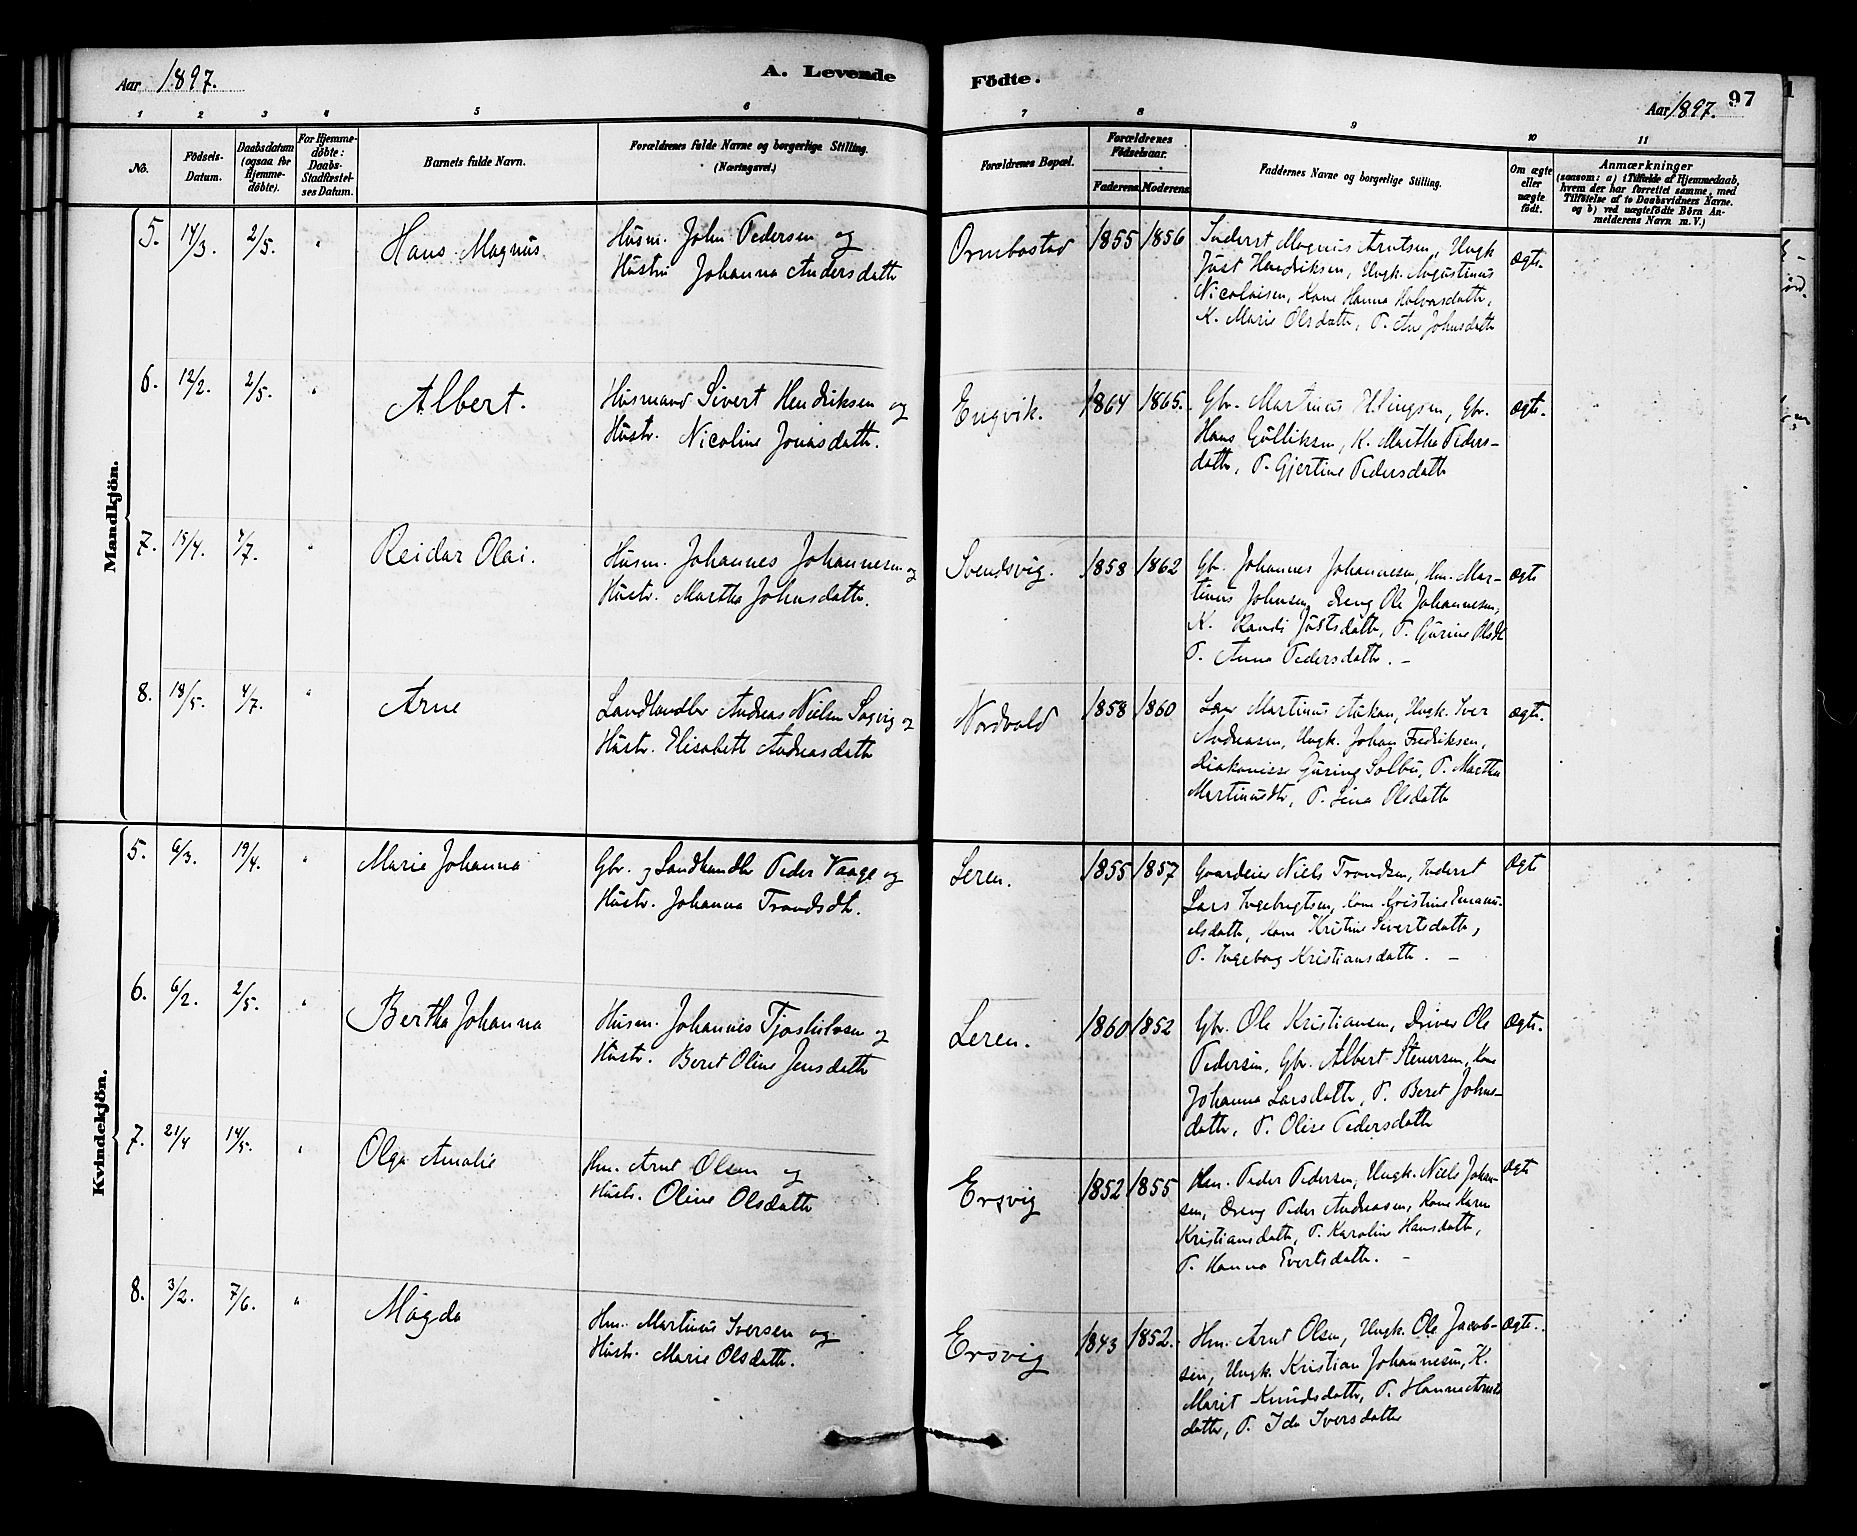 Aar 1897.
A. Levende
Födte.
Aar 1897.
97
1 2 3 4 5 6 7 8 9 10 11
No.
Födsels-
Datum.
Daabsdatum
(ogsaa for
Hjemme-
döbte).
For Hjemme-
döbte:
Daabs-
Stadfæstel-
ses Datum.
Barnets fulde Navn.
Forældrenes fulde Navne og borgerlige Stilling.
(Næringsvei.)
Forældrenes Bopæl.
Forældrenes
Födselsaar.
Faderens. Moderens.
Faddernes Navne og borgerlige Stilling.
Om ægte
eller
uægte
födt.
Anmærkninger
(saasom: a) i Tilfælde af Hjemmedaab,
hvem der har forrettet samme, med
Tilföielse af to Daabsvidners Navne.
og b) ved uægtefödte Börn An-
melderens Navn m. V.)
Mandkjön.
5. 14/3. 2/5. " Hans Magnus
Husm. John Pedersen og
Hustru Johanna Andersdattr
Ormbostad 1855 1856
Inderst Magnus Arntsen, Ungk
Just Hendriksen, Ungk. Augustinus
Nicolaisen, Kone Hanna Halvorsdattr,
K. Marie Olsdattr, P. Ane Johnsdattr
Ægte.
6. 12/2. 2/5. " Albert.
Husmand Sivert Hendriksen og
Hustr. Nicoline Jonasdattr.
Engvik. 1864 1865.
Gbr. Martinus Ellingsen, Gbr.
Hans Gulliksen, K. Martha Peders-
dattr, P. Gjertine Pedersdattr
Ægte.
7. 15/4. 4/7. " Reidar Olai.
Husm. Johannes Johannesen og
Hustr. Martha Johnsdattr.
Svendsvig. 1858 1862
Gbr. Johannes Johannesen, Hm. Mar-
tinus Johnsen, Dreng Ole Johannesen,
K. Randi Justsdattr, P. Gurine Olsdtr
P. Anna Pedersdattr. –
Ægte
8. 18/5. 4/7. " Arne
Landhandler Andreas Nielsen Sagvig og
Hustr. Elisabeth Andreasdattr
Nordvold 1858 1860
Martinus Aukan, Ungk. Iver
Andreasen, Ungk. Johan Fredriksen,
Diakonisse Guring Solbu, P. Martha
Martinusdtr, P. Lina Olsdattr
Ægte.
Kvindekjön.
5. 6/3. 19/4. " Marie Johanna
Gbr. og Landhandlr Peder Vaage og
Hustr. Johanna Trondsdtr.
Leren. 1855 1857
Gaardeier Niels Trondsen, Inderst
Lars Ingebrigtsen, Kone Kristine Emanu-
elsdattr, Kone Kristine Sivertsdattr,
P. Ingeborg Kristiansdattr. –
Ægte
6. 6/2. 2/5. " Bertha Johanna
Husm. Johannes Tjostolvsen og
Hustr. Beret Oline Jensdattr
Leren. 1860 1852
Gbr. Ole Kristiansen, Driver Ole
Pedersen, Gbr. Albert Stenersen, Kone
Johanna Larsdattr, P. Beret Johns-
dattr, P. Olise Pedersdattr
Ægte.
7. 21/4 14/5. " Olga Amalie
Hm. Arnt Olsen og
Hustr. Oline Olsdattr
Ersvig 1852 1855
Hm. Peder Pedersen, Ungk. Niels Johan-
sen, Dreng Peder Andreasen, Kone Karen
Kristiansdattr, P. Karoline Hansdattr,
P. Hanna Evertsdattr. –
Ægte
8. 3/2. 7/6. " Magda
Hm. Martinus Iversen og
Hustr. Marie Olsdattr.
Ersvig 1843 1852.
Hm. Arnt Olsen, Ungk. Ole Jacob-
sen, Ungk. Kristian Johannesen, K.
Marit Knudsdattr, P. Hanna Arnts
dattr, P. Ida Iversdatter
Ægte.